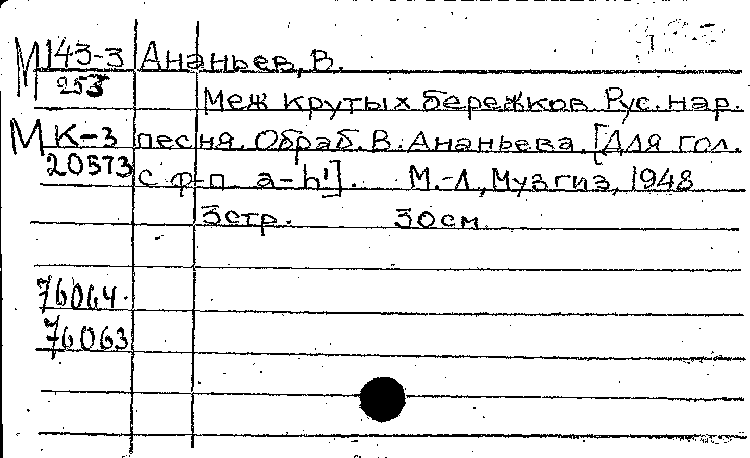 М 143-3 Ананьев, В.
253 Меж крутых бережков. Рус. нар.
М К-3 песня. Обраб. В. Ананьева. [Для гол.
20573 с ф-п. a-h¹]. М.-Л, Музгиз, 1948
3стр. 30см
76064.
76063